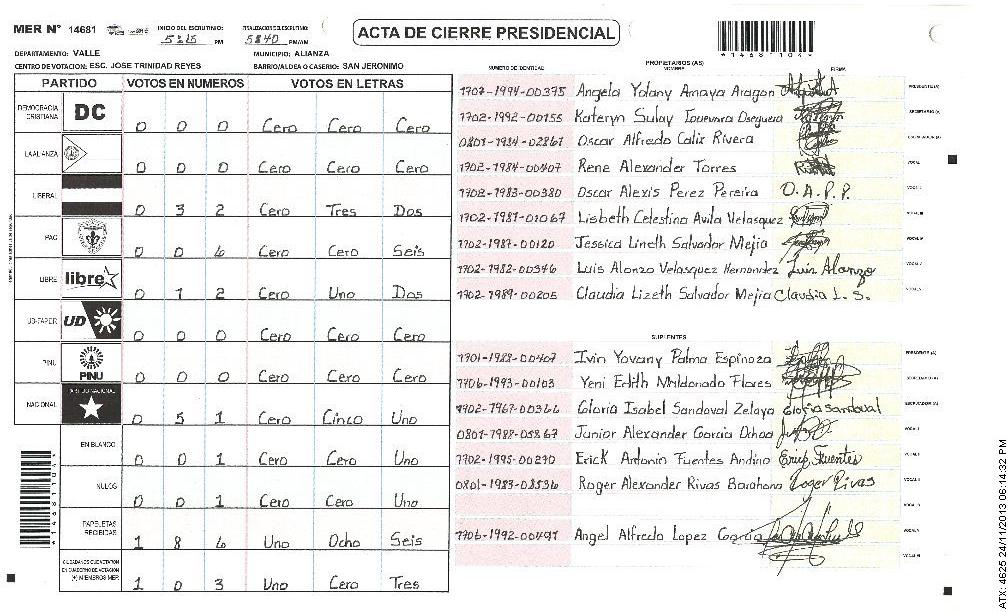 MER Nº 14681
INICIO DEL ESCRUTINIO: 5:25 PM
FINALIZACION DEL ESCRUTINIO: 5:40 PM/AM
ACTA DE CIERRE PRESIDENCIAL
*146811044*
DEPARTAMENTO: VALLE
MUNICIPIO: ALIANZA
CENTRO DE VOTACION: ESC. JOSE TRINIDAD REYES
BARRIO/ALDEA O CASERIO: SAN JERONIMO
PARTIDO VOTOS EN NUMEROS VOTOS EN LETRAS
DEMOCRACIA CRISTIANA DC 0 0 0 Cero Cero Cero
LA ALIANZA 0 0 0 Cero Cero Cero
LIBERAL 0 3 2 Cero Tres Dos
PAC 0 0 6 Cero Cero Seis
LIBRE libre 0 1 2 Cero Uno Dos
UD-FAPER UD 0 0 0 Cero Cero Cero
PINU PINU 0 0 0 Cero Cero Cero
NACIONAL PARTIDO NACIONAL 0 5 1 Cero Cinco Uno
EN BLANCO 0 0 1 Cero Cero Uno
NULOS 0 0 1 Cero Cero Uno
PAPELETAS RECIBIDAS 1 8 6 Uno Ocho Seis
CIUDADANOS QUE VOTARON EN CUADERNO DE VOTACION (+) MIEMBROS MER 1 0 3 Uno Cero Tres
NUMERO DE IDENTIDAD
PROPIETARIOS (AS)
NOMBRE
FIRMA
1707-1994-00375 Angela Yolany Amaya Aragon PRESIDENTE (A)
1702-1992-00155 Kateryn Sulay Oseguera SECRETARIO (A)
0801-1984-02861 Oscar Alfredo Calix Rivera ESCRUTADOR (A)
1702-1984-00407 Rene Alexander Torres VOCAL
1702-1983-00380 Oscar Alexis Perez Pereira O. A. P. P.
1702-1981-01067 Lisbeth Celestina Avila Velasquez
1702-1987-00120 Jessica Lineth Salvador Mejia
1702-1982-00346 Luis Alonzo Velasquez Hernandez Luis Alonzo
1702-1989-00205 Claudia Lizeth Salvador Mejia Claudia L. S.
SUPLENTES
1701-1988-00407 Ivin Yovany Palma Espinoza PRESIDENTE (A)
1706-1993-00103 Yeni Edith Maldonado Flores SECRETARIO (A)
1702-1967-00366 Gloria Isabel Sandoval Zelaya Gloria Sandoval ESCRUTADOR (A)
0801-1988-05867 Junior Alexander Garcia Ochoa
1702-1995-00270 Erick Antonio Fuentes Andino Erick Fuentes
0801-1983-08536 Roger Alexander Rivas Barahona Roger Rivas
1706-1992-00491 Angel Alfredo Lopez Garcia
ATX: 4625 24/11/2013 06:14:32 PM